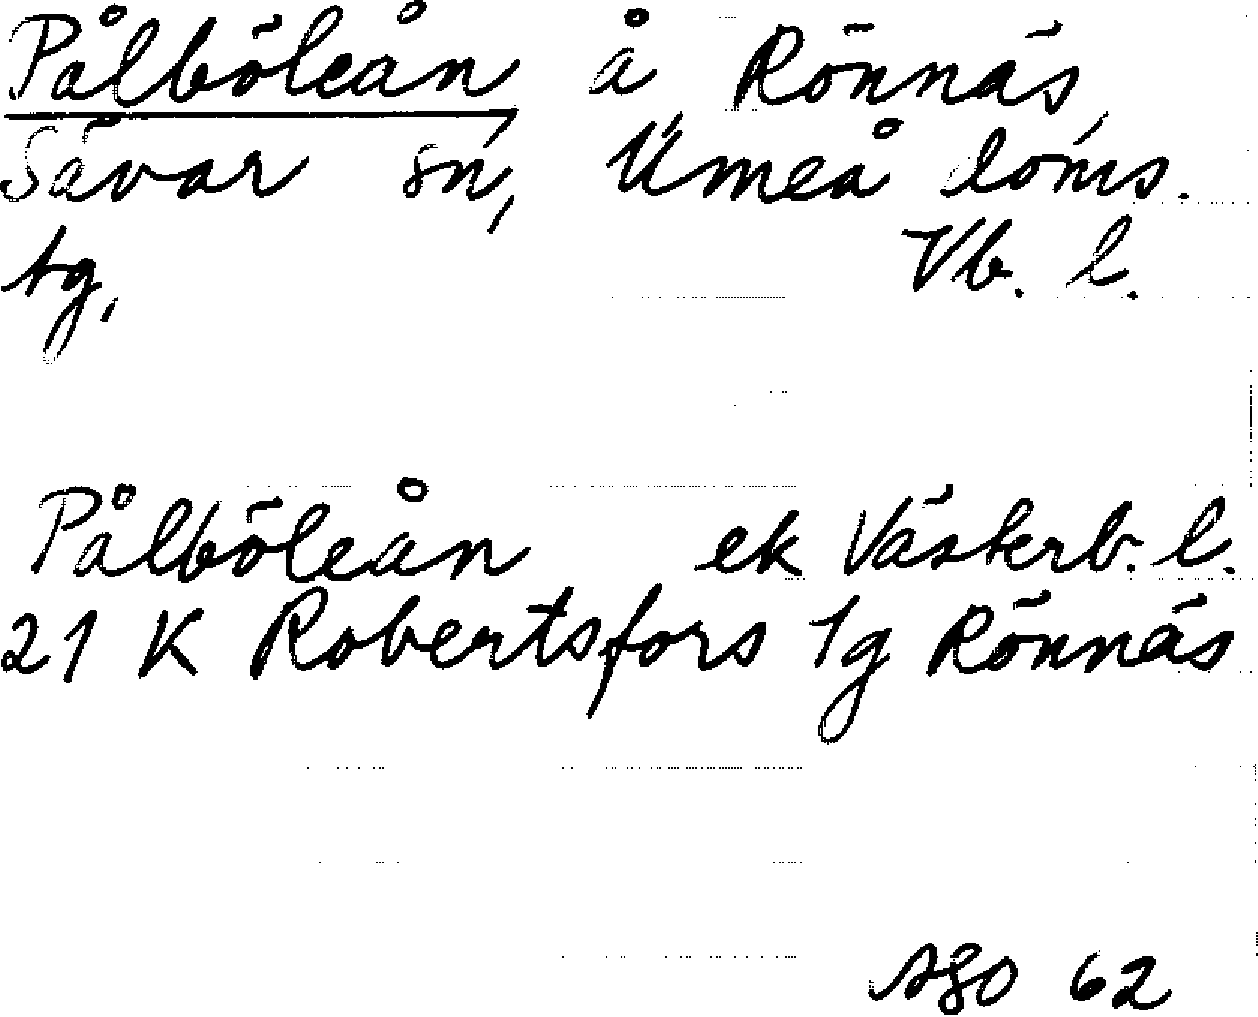 Pålböleån å Rönnäs,
Sävar sn, Umeå doms.
tg, Vb. l.
Pålböleån ek Västerb. l.
21 K Robertsfors 1g Rönnäs
SGO 62